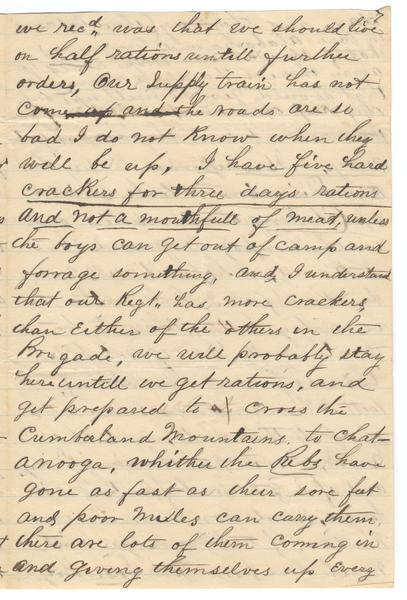 7
we recd. was that we should live
on half rations untill further
orders, Our Supply train has not
come up and the roads are so
bad I do not Know when they
will be up, I have five hard
crackers for three days rations
and not a mouthfull of meat, unless
the boys can get out of camp and
forrage something, and, I understand
that our Regt. has more crackers
than Either of the others in the
Brigade, we will probably stay
here untill we get rations, and
get prepared to cross the
Cumberland Mountains. to Chat-
anooga, whither the Rebs have
gone as fast as their sore fut
and poor Mules can carry them
there are lots of them coming in
and giving themselves up Every